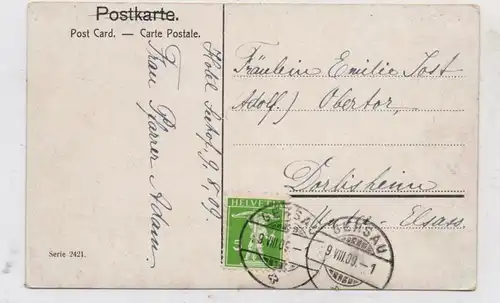 Postkarte.
Post Card. — Carte Postale.
Hotel Seehof, 9. 8. 09.
Frau Pfarrer Adam.
Fräulein Emilie Jost
Adolf.) Obertor,
Dorlisheim
Unter-Elsass.
HELVETIA
5
GERSAU
9.VIII.09.–1
GERSAU
9.VIII.09.–1
Serie 2421.